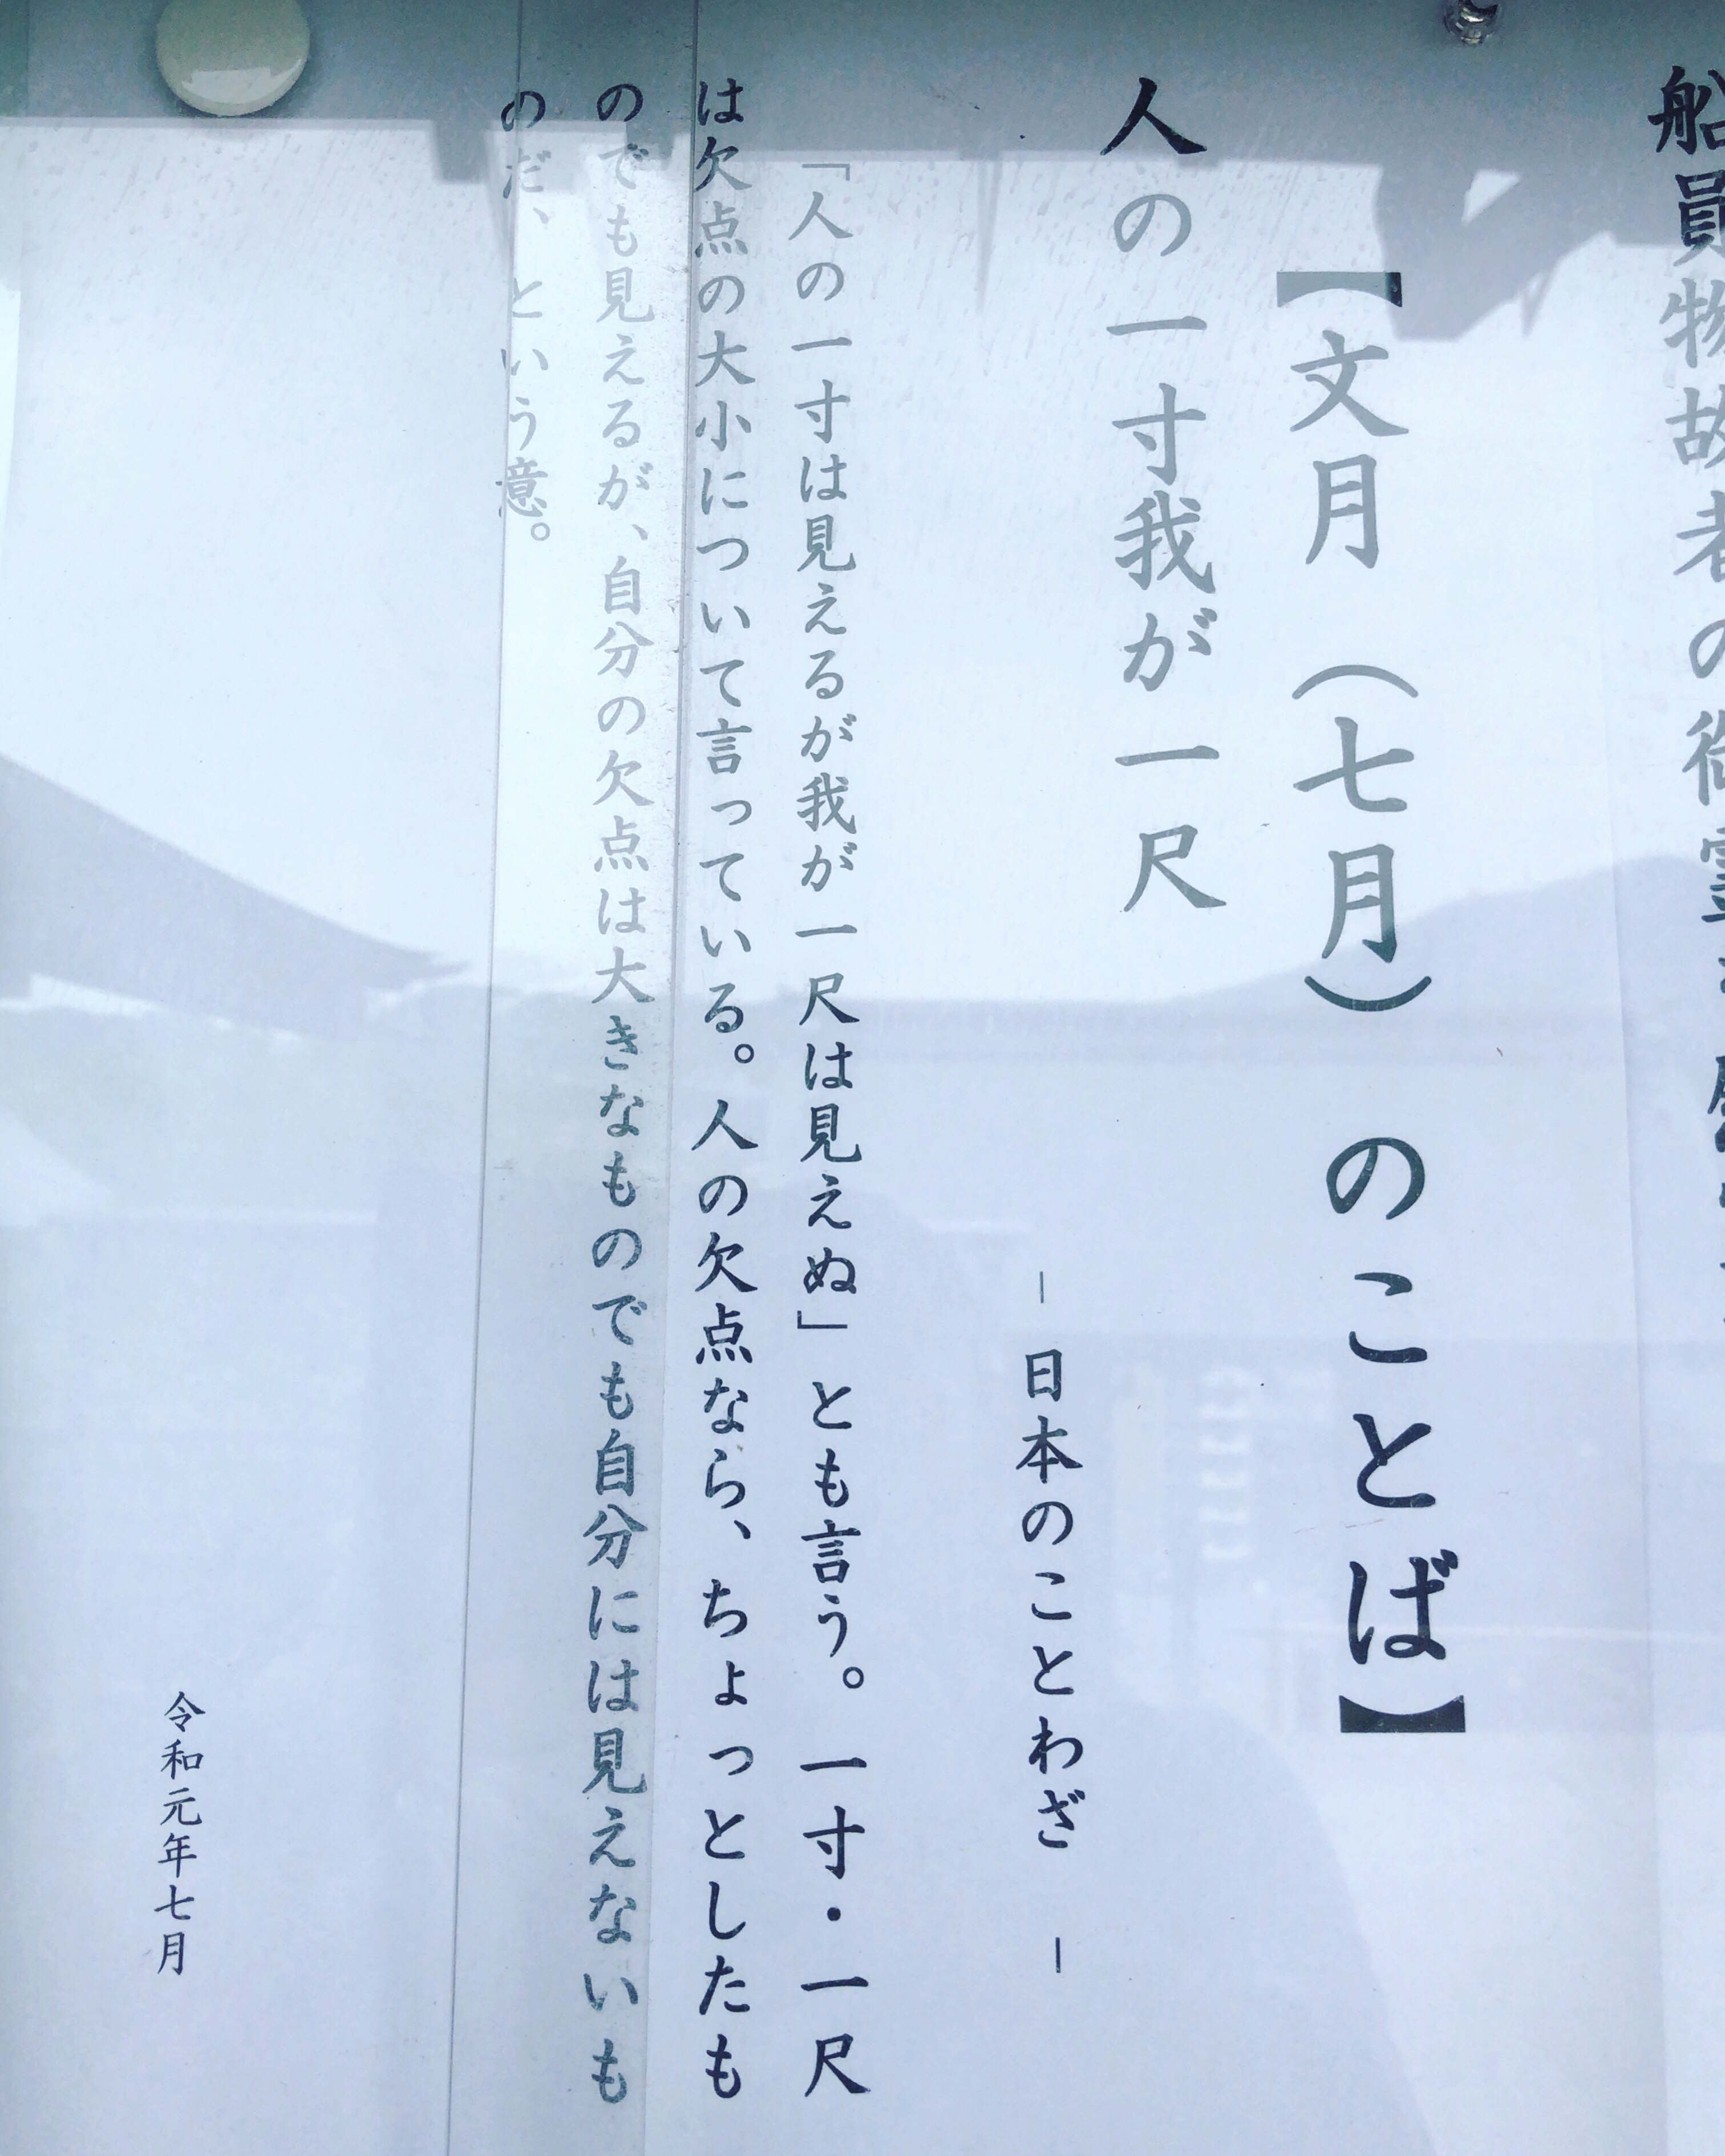 船員物故者の
【文月（七月）のことば】
人の一寸我が一尺
－日本のことわざ－
「人の一寸は見えるが我が一尺は見えぬ」とも言う。一寸・一尺
は欠点の大小について言っている。人の欠点なら、ちょっとしたも
のでも見えるが、自分の欠点は大きなものでも自分には見えないも
のだ、という意。
令和元年七月